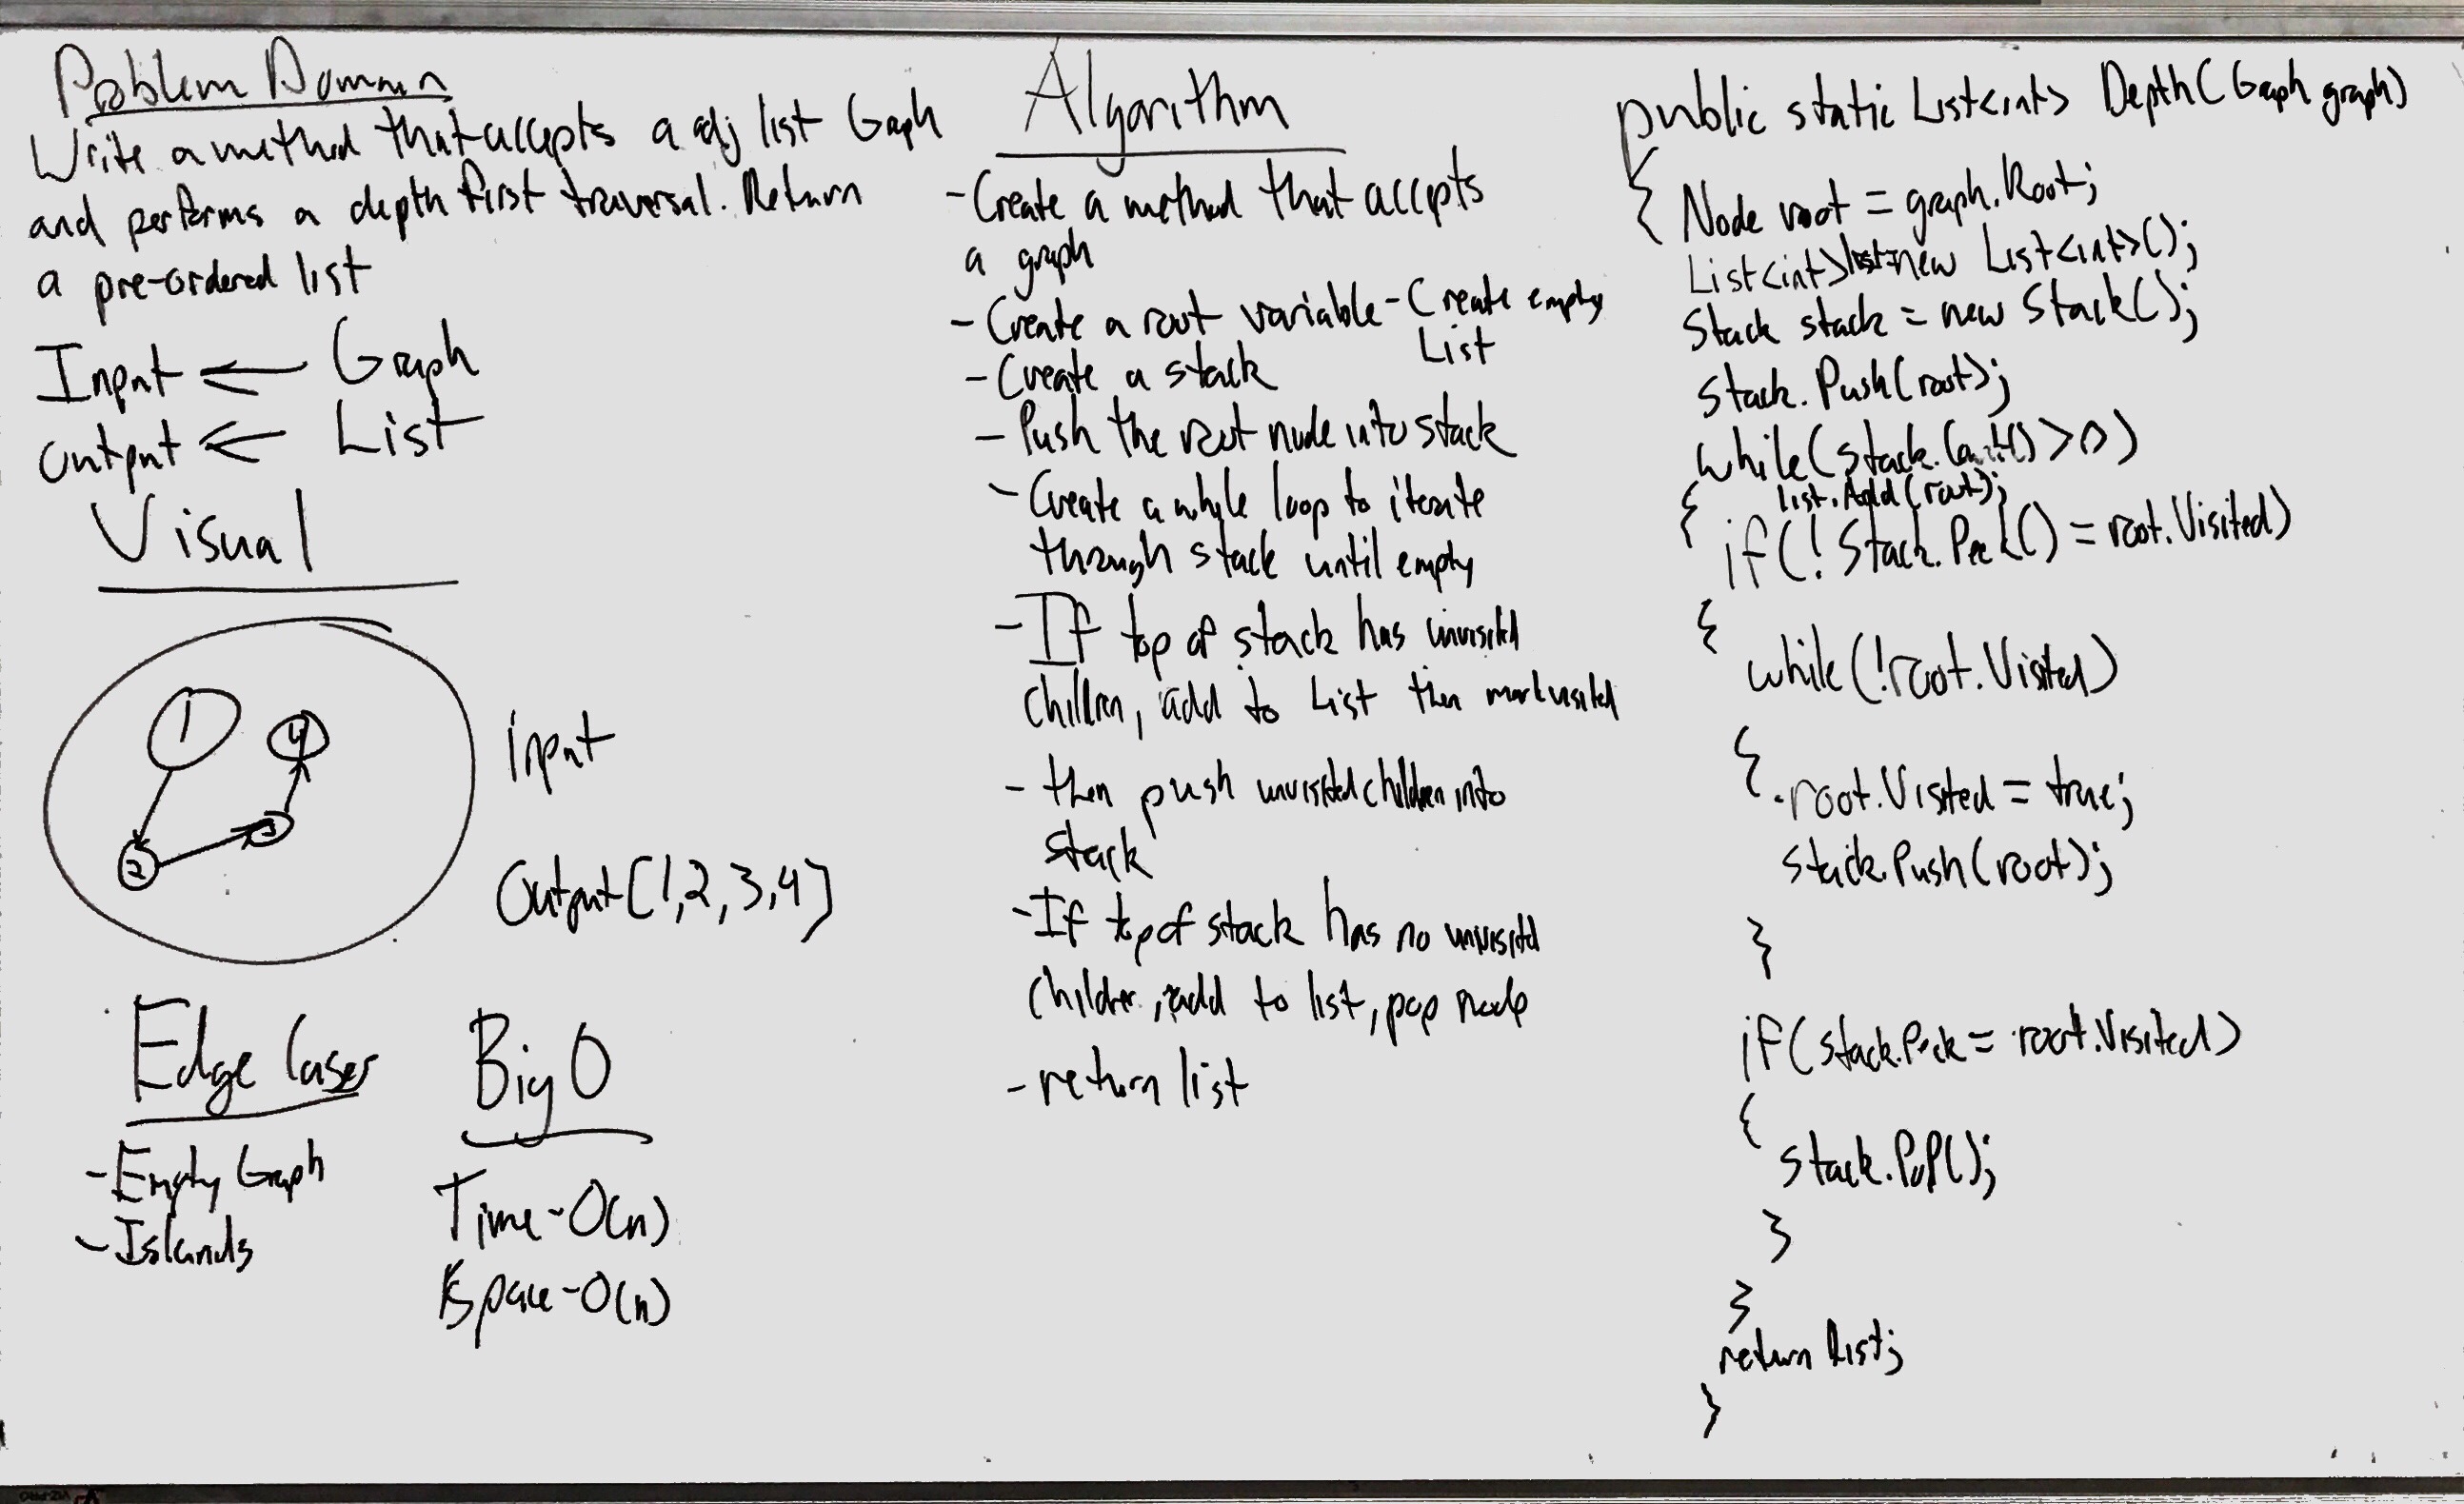 Problem Domain
Write a method that accepts a adj list Graph
and performs a depth first traversal. Return
a pre-ordered list
Input ← Graph
Output ← List
Visual
1
4
3
2
input
Output [1,2,3,4]
Edge Cases
- Empty Graph
- Islands
Big O
Time - O(n)
Space - O(n)
Algorithm
- Create a method that accepts
a graph
- Create a root variable - Create empty
List
- Create a stack
- Push the root node into stack
- Create a while loop to iterate
through stack until empty
- If top of stack has unvisited
children, add to List then mark visited
- then push unvisited children into
stack
- If top of stack has no unvisited
children, add to list, pop node
- return list
public static List<int> Depth(Graph graph)
{ Node root = graph.Root;
List<int> list = new List<int>();
Stack stack = new Stack();
stack.Push(root);
while(stack.Count() > 0)
{ list.Add(root);
if(! Stack.Peek() = root.Visited)
{
while(!root.Visited)
{
root.Visited = true;
stack.Push(root);
}
if(stack.Peek = root.Visited)
{
stack.POP();
}
}
return list;
}